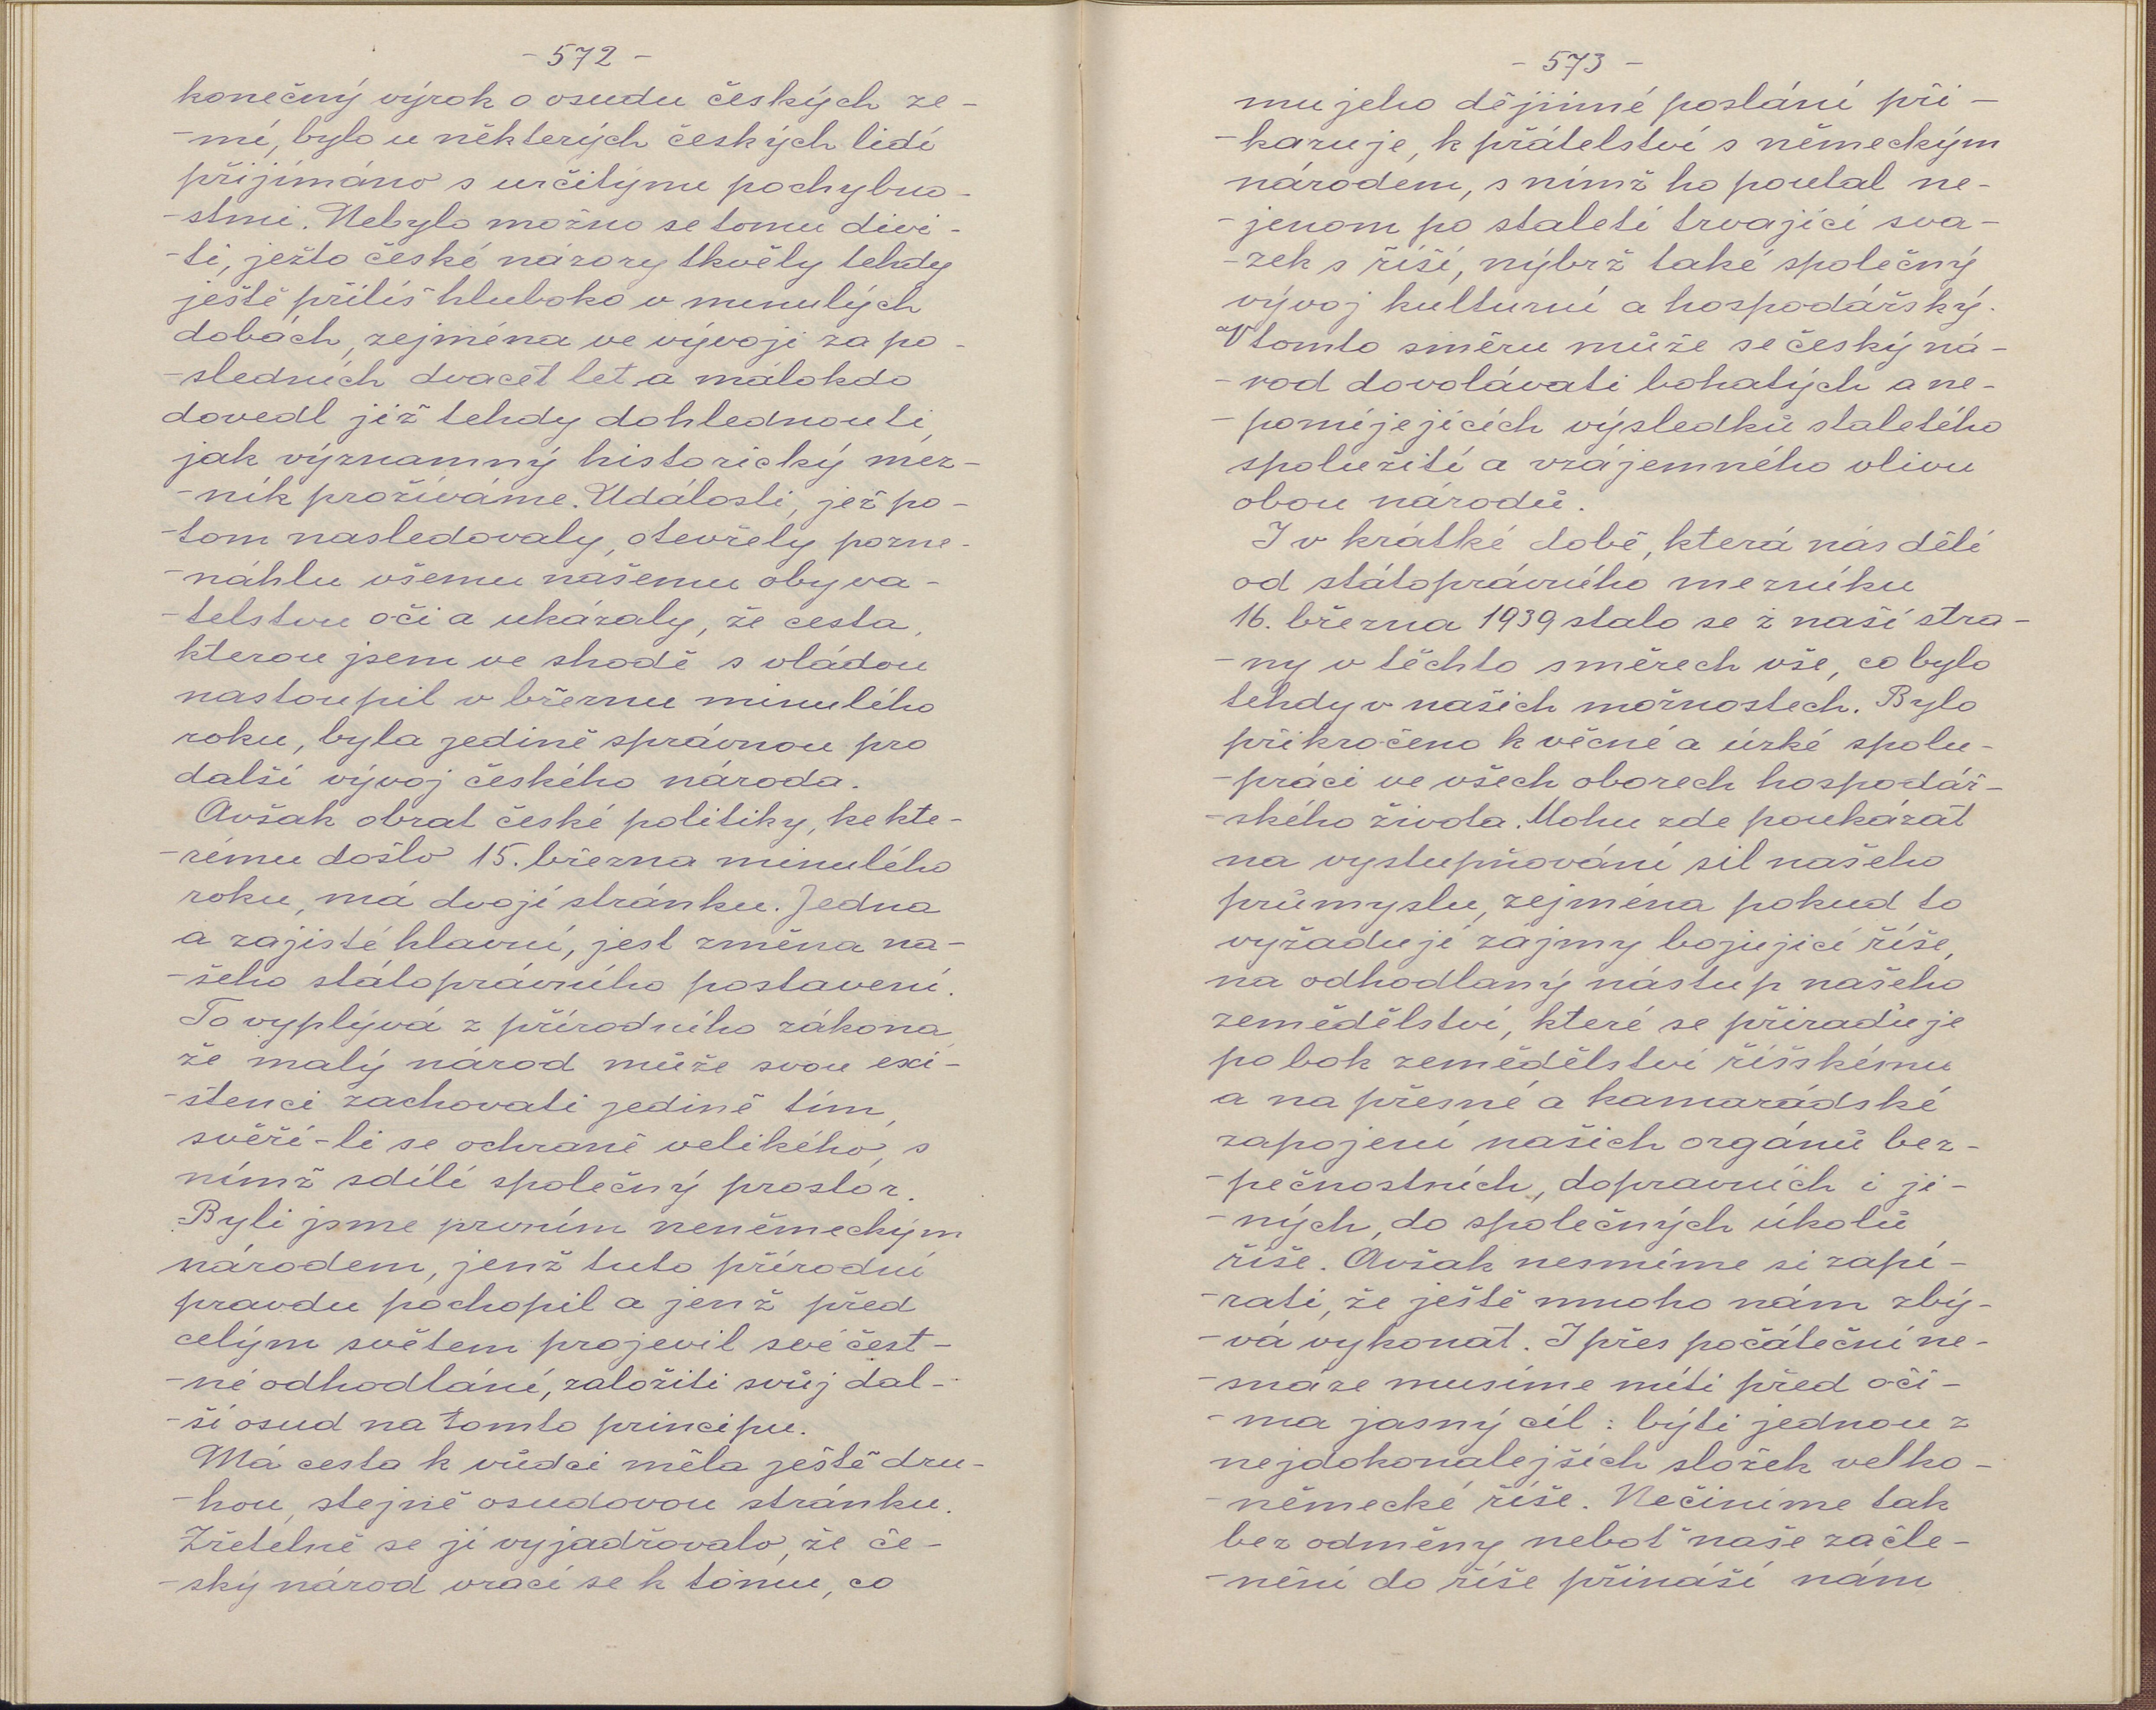 - 572 -
konečný výrok o osudu českých ze-
-mí, bylo u některých českých lidí
přijímáno s určitými pochybno-
-stmi. Nebylo možno se tomu divi-
-ti, ježto české názory tkvěly tehdy
ještě příliš hluboko v minulých
dobách, zejména ve vývoji za po-
-sledních dvacet let a málokdo
dovedl již tehdy dohlednouti,
jak významný historický mez-
-ník prožíváme. Události, jež po-
-tom nasledovaly, otevřely pozne-
-náhlu všemu našemu obyva-
-telstvu oči a ukázaly, že cesta,
kterou jsem ve shodě s vládou
nastoupil v březnu minulého
roku, byla jedině správnou pro
další vývoj českého národa.
Avšak obrat české politiky, ke kte-
-rému došlo 15. března minulého
roku, má dvojí stránku. Jedna
a zajisté hlavní, jest změna na-
-šeho státoprávního postavení.
To vyplývá z přírodního zákona,
že malý národ může svou exi-
-stenci zachovati jedině tím,
svěří-li se ochraně velikého, s
nímž sdílí společný prostor.
Byli jsme prvním neněmeckým
národem, jenž tuto přírodní
pravdu pochopil a jenž před
celým světem projevil své čest-
-né odhodlání, založiti svůj dal-
-ší osud na tomto principu.
Má cesta k vůdci měla ještě dru-
-hou, stejně osudovou stránku.
Zřetelně se jí vyjadřovalo, že če-
-ský národ vrací se k tomu, co
- 573 -
mu jeho dějinné poslání při-
-kazuje, k přátelství s německým
národem, s nímž ho poutal ne-
-jenom po staletí trvající sva-
-zek s říší, nýbrž také společný
vývoj kulturní a hospodářský.
V tomto směru může se český ná-
-rod dovolávati bohatých a ne-
-pomíjejících výsledků staletého
spolužití a vzájemného vlivu
obou národů.
I v krátké době, která nás dělí
od státoprávního mezníku
16. března 1939 stalo se z naší stra-
-ny v těchto směrech vše, co bylo
tehdy v našich možnostech. Bylo
přikročeno k věcné a úzké spolu-
-práci ve všech oborech hospodář-
-ského života. Mohu zde poukázat
na vystupňování sil našeho
průmyslu, zejména pokud to
vyžadují zájmy bojující říše,
na odhodlaný nástup našeho
zemědělství, které se přiraďuje
po bok zemědělství říšskému
a na přesné a kamarádské
zapojení našich orgánů bez-
-pečnostních, dopravních i ji-
-ných, do společných úkolů
říše. Avšak nesmíme si zapí-
-rati, že ještě mnoho nám zbý-
-vá vykonat. I přes počáteční ne-
-snáze musíme míti před oči-
-ma jasný cíl: býti jednou z
nejdokonalejších složek velko-
-německé říše. Nečiníme tak
bez odměny neboť naše začle-
-nění do říše přináší nám